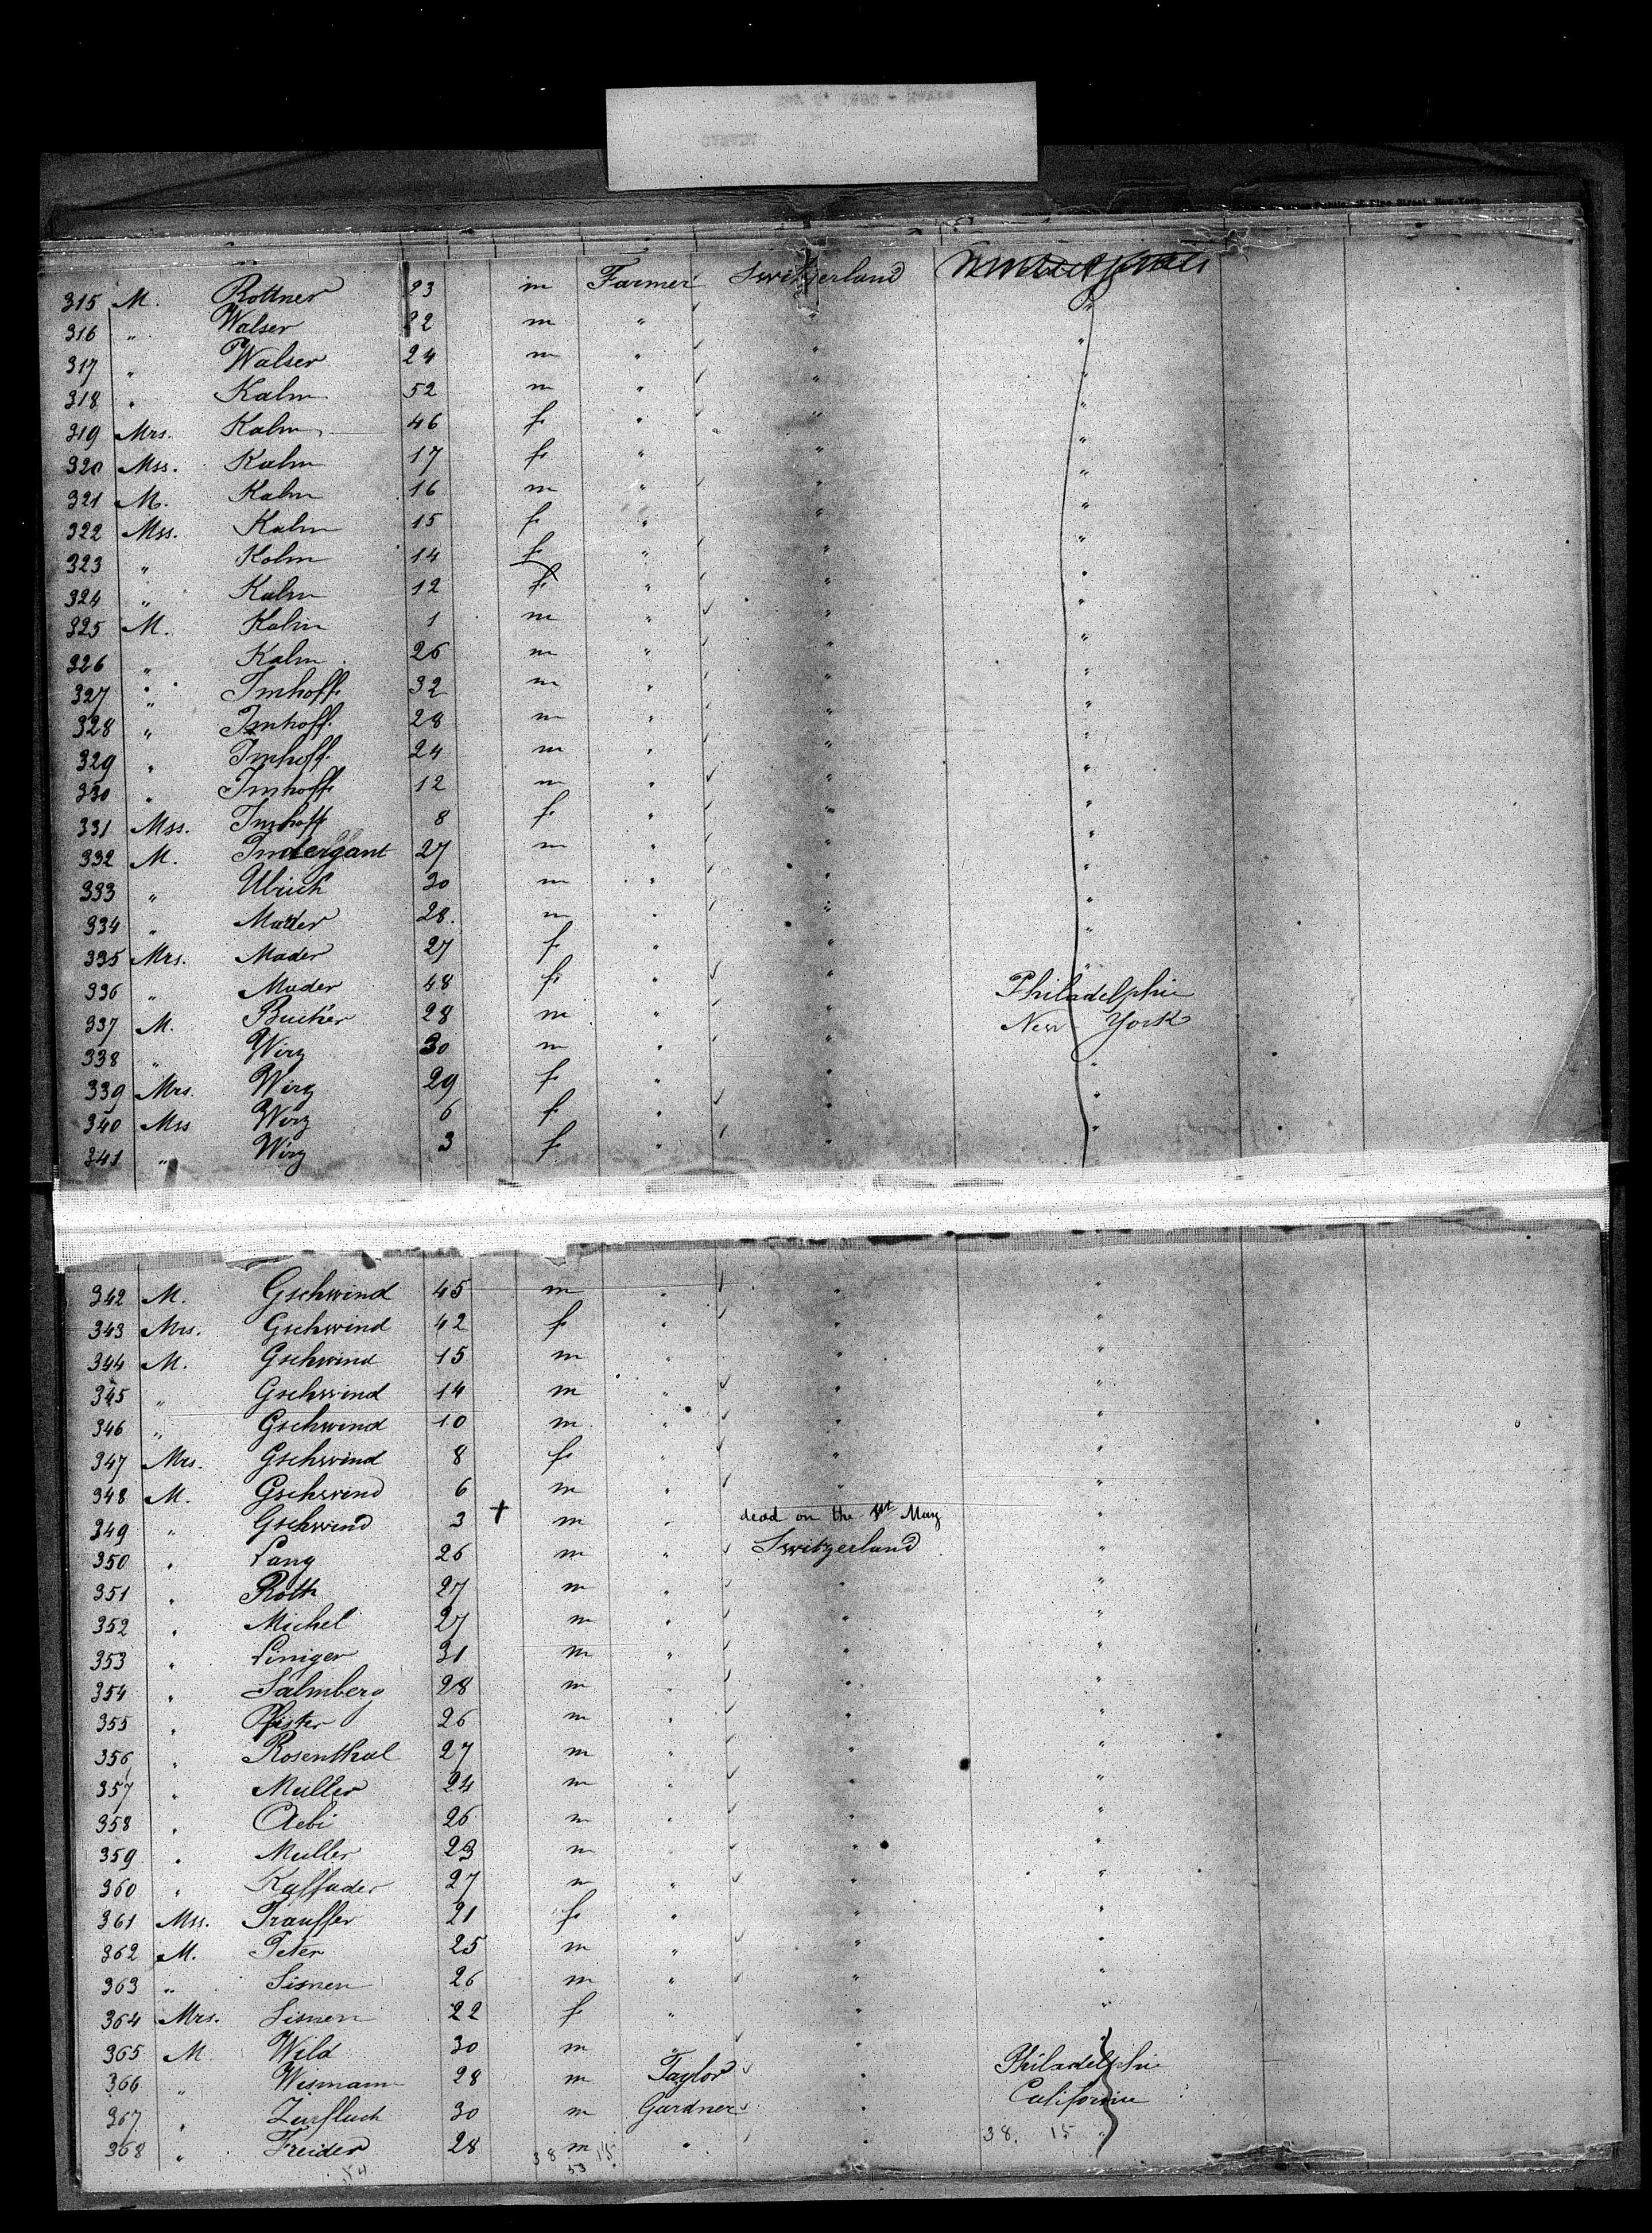 315 M. Rottner 23 m Farmer Switzerland
316 " Walser 22 m " " "
317 " Walser 24 m " " "
318 " Kalm 52 m " " "
319 Mrs. Kalm 46 f. " " "
320 Mss. Kalm 17 f. " " "
321 M. Kalm 16 m " " "
322 Mss. Kalm 15 f. " " "
323 " Kalm 14 f. " " "
324 " Kalm 12 f. " " "
325 M. Kalm 1 m " " "
326 " Kalm 26 m " " "
327 " Imhoff. 32 m " " "
328 " Imhoff. 28 m " " "
329 " Imhoff. 24 m " " "
330 " Imhoff. 12 m " " "
331 Mss. Imhoff 8 f. " " "
332 M. Indergant 27 m " " "
333 " Ulrich 30 m " " "
334 " Mader 28. m " " "
335 Mrs. Mader 27 f. " " "
336 " Mader 48 f. " " Philadelphie
337 M. Bucher 28 m " " New-York
338 " Wirz 30 m " " "
339 Mrs. Wirz 29 f. " " "
340 Mss Wirz 6 f. " " "
341 " Wirz 3 f. " "
342 M. Gschwind 45 m " " "
343 Mrs. Gschwind 42 f. " " "
344 M. Gschwind 15 m " " "
345 " Gschwind 14 m " " "
346 " Gschwind 10 m " " "
347 Mrs. Gschwind 8 f. " " "
348 M. Gschwind 6 m " " "
349 " Gschwind 3 + m " dead on the 1st May "
350 " Lang 26 m " Switzerland "
351 " Roth 27 m " " "
352 " Michel 27 m " " "
353 " Liniger 31 m " " "
354 " Salmberg 28 m " " "
355 " Pfister 26 m " " "
356 " Rosenthal 27 m " " "
357 " Muller 24 m " " "
358 " Aebi 26 m " " "
359 " Muller 23 m " " "
360 " Kalfader 27 m " " "
361 Mss. Trauffer 21 f. " " "
362 M. Peter 25 m " " "
363 " Sismen 26 m " " "
364 Mrs. Sismen 22 f. " " "
365 M. Wild 30 m " " "
366 " Wismann 28 m Taylor " Philadelphie
367 " Zurfluch 30 m Gardner " Californie
368 " Freider 28 m " " "
54 38 15 53 38. 15